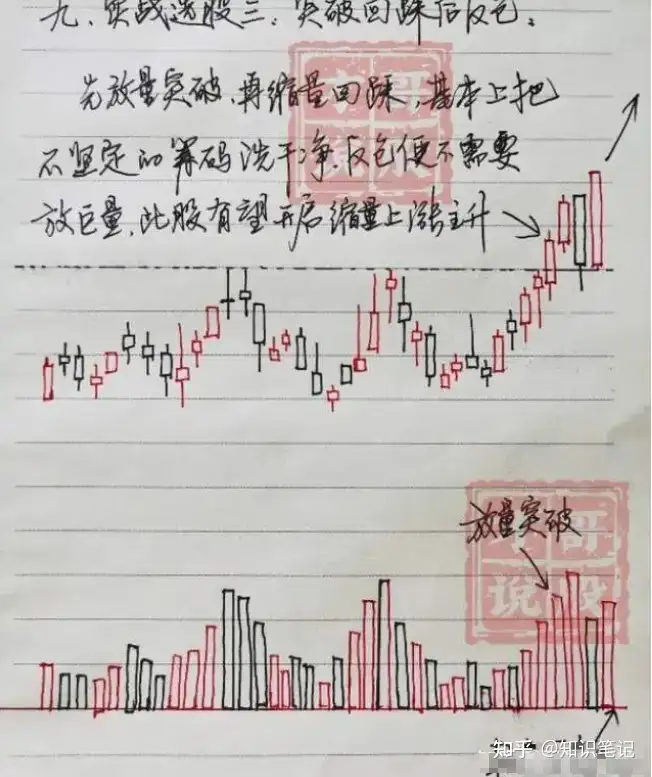 九、实战选股三:突破回踩后反包。
先放量突破,再缩量回踩,基本上把
不坚定的筹码洗干净,反包便不需要
放巨量,此股有望开启缩量上涨主升
放量突破
哥
说股
知乎 @知识笔记